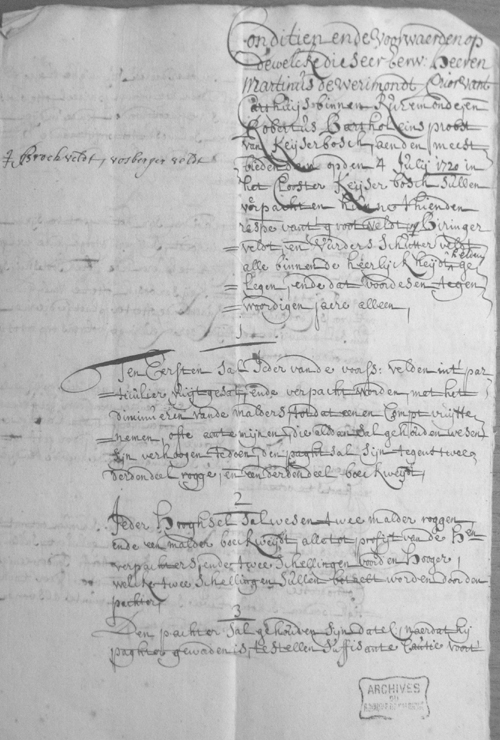 Conditien ende voorwaerden op
dewelcke die seer Eerw: Heeren
Martinus de Werimondt Prior vant
Carthuijs binnen Ruremonde en
Robertus Bartholeins probst
van Keijserbosch, aenden meest
biedenden op den 4 Julij 1720 in
het Clooster Keijserbosch sullen
verpachten hunne thienden
respe vant groot veldt, Biringer
veldt, en Schutter veldt
alle binnen de heerlijckheijdt ge
legen, ende dat voor desen tegen
woordigen jaere alleen,
Broeck veldt, rosberger veldt
1
Ten Eersten sal Jeder vande voors: velden int par
ticulier uijtgesat, ende verpacht worden met het
diminueren vande malders totdat eenen Compt uijtte
nemen, ofte aftemijnen, die aldan sal gehouden wesen
sijn verhoogen te doen, den paght sal sijn tegen twee
derdendeel rogge, en een derdendeel boeckweijdt,
2
Jeder Hooghsel sal wesen twee malder roggen
ende een malder boeckweijdt, alles tot profijt vande Hren
verpachters, ende twee schellingen voor den Hooger,
welcke twee schellingen sullen betaelt worden door den
pachter,
3
Den pachter sal gehouden sijn datelijck naerdat hij
paghter gewarden is, te stellen suffisante Cautie voort
ARCHIVES